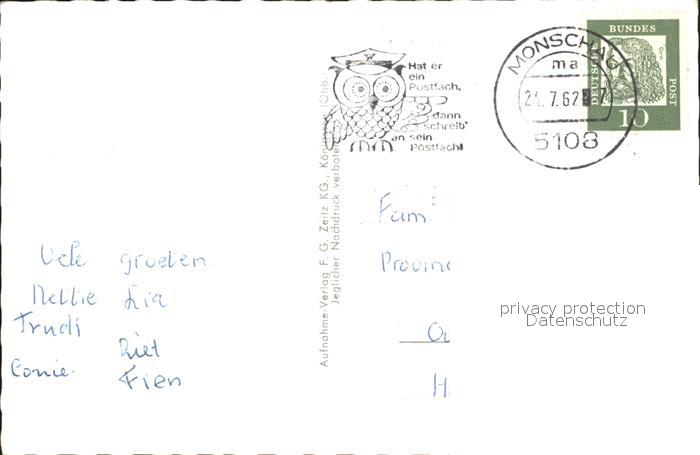 Hat er
ein
Postfach,
dann
schreib'
an sein
Postfach!
MONSCHAU
ma
24. 7. 62
5108
DEUTSCHE
BUNDES
POST
10
Aufnahme-Verlag F. G. Zeitz KG., (Obb.)
Jeglicher Nachdruck verboten
Fam.
privacy protection
Datenschutz
Vele groeten.
Nellie Ria
Trudi
Riet
Conie Fien